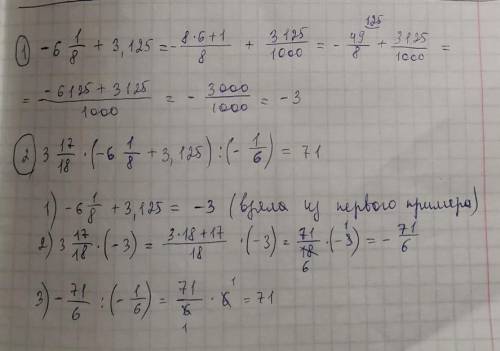 1) -6 1/8 + 3,125 = - 8·6+1/8 + 3125/1000 = - 49/8 ¹²⁵ + 3125/1000 =
= -6125 + 3125/1000 = - 3000/1000 = -3
2) 3 17/18 · (-6 1/8 + 3,125) : (- 1/6) = 71
1) -6 1/8 + 3,125 = -3 (взяла из первого примера)
2) 3 17/18 · (-3) = 3·18+17/18 · (-3) = 71/18 6 · (-3 1) = - 71/6
3) - 71/6 : (- 1/6) = 71/6 1 · 6 1 = 71